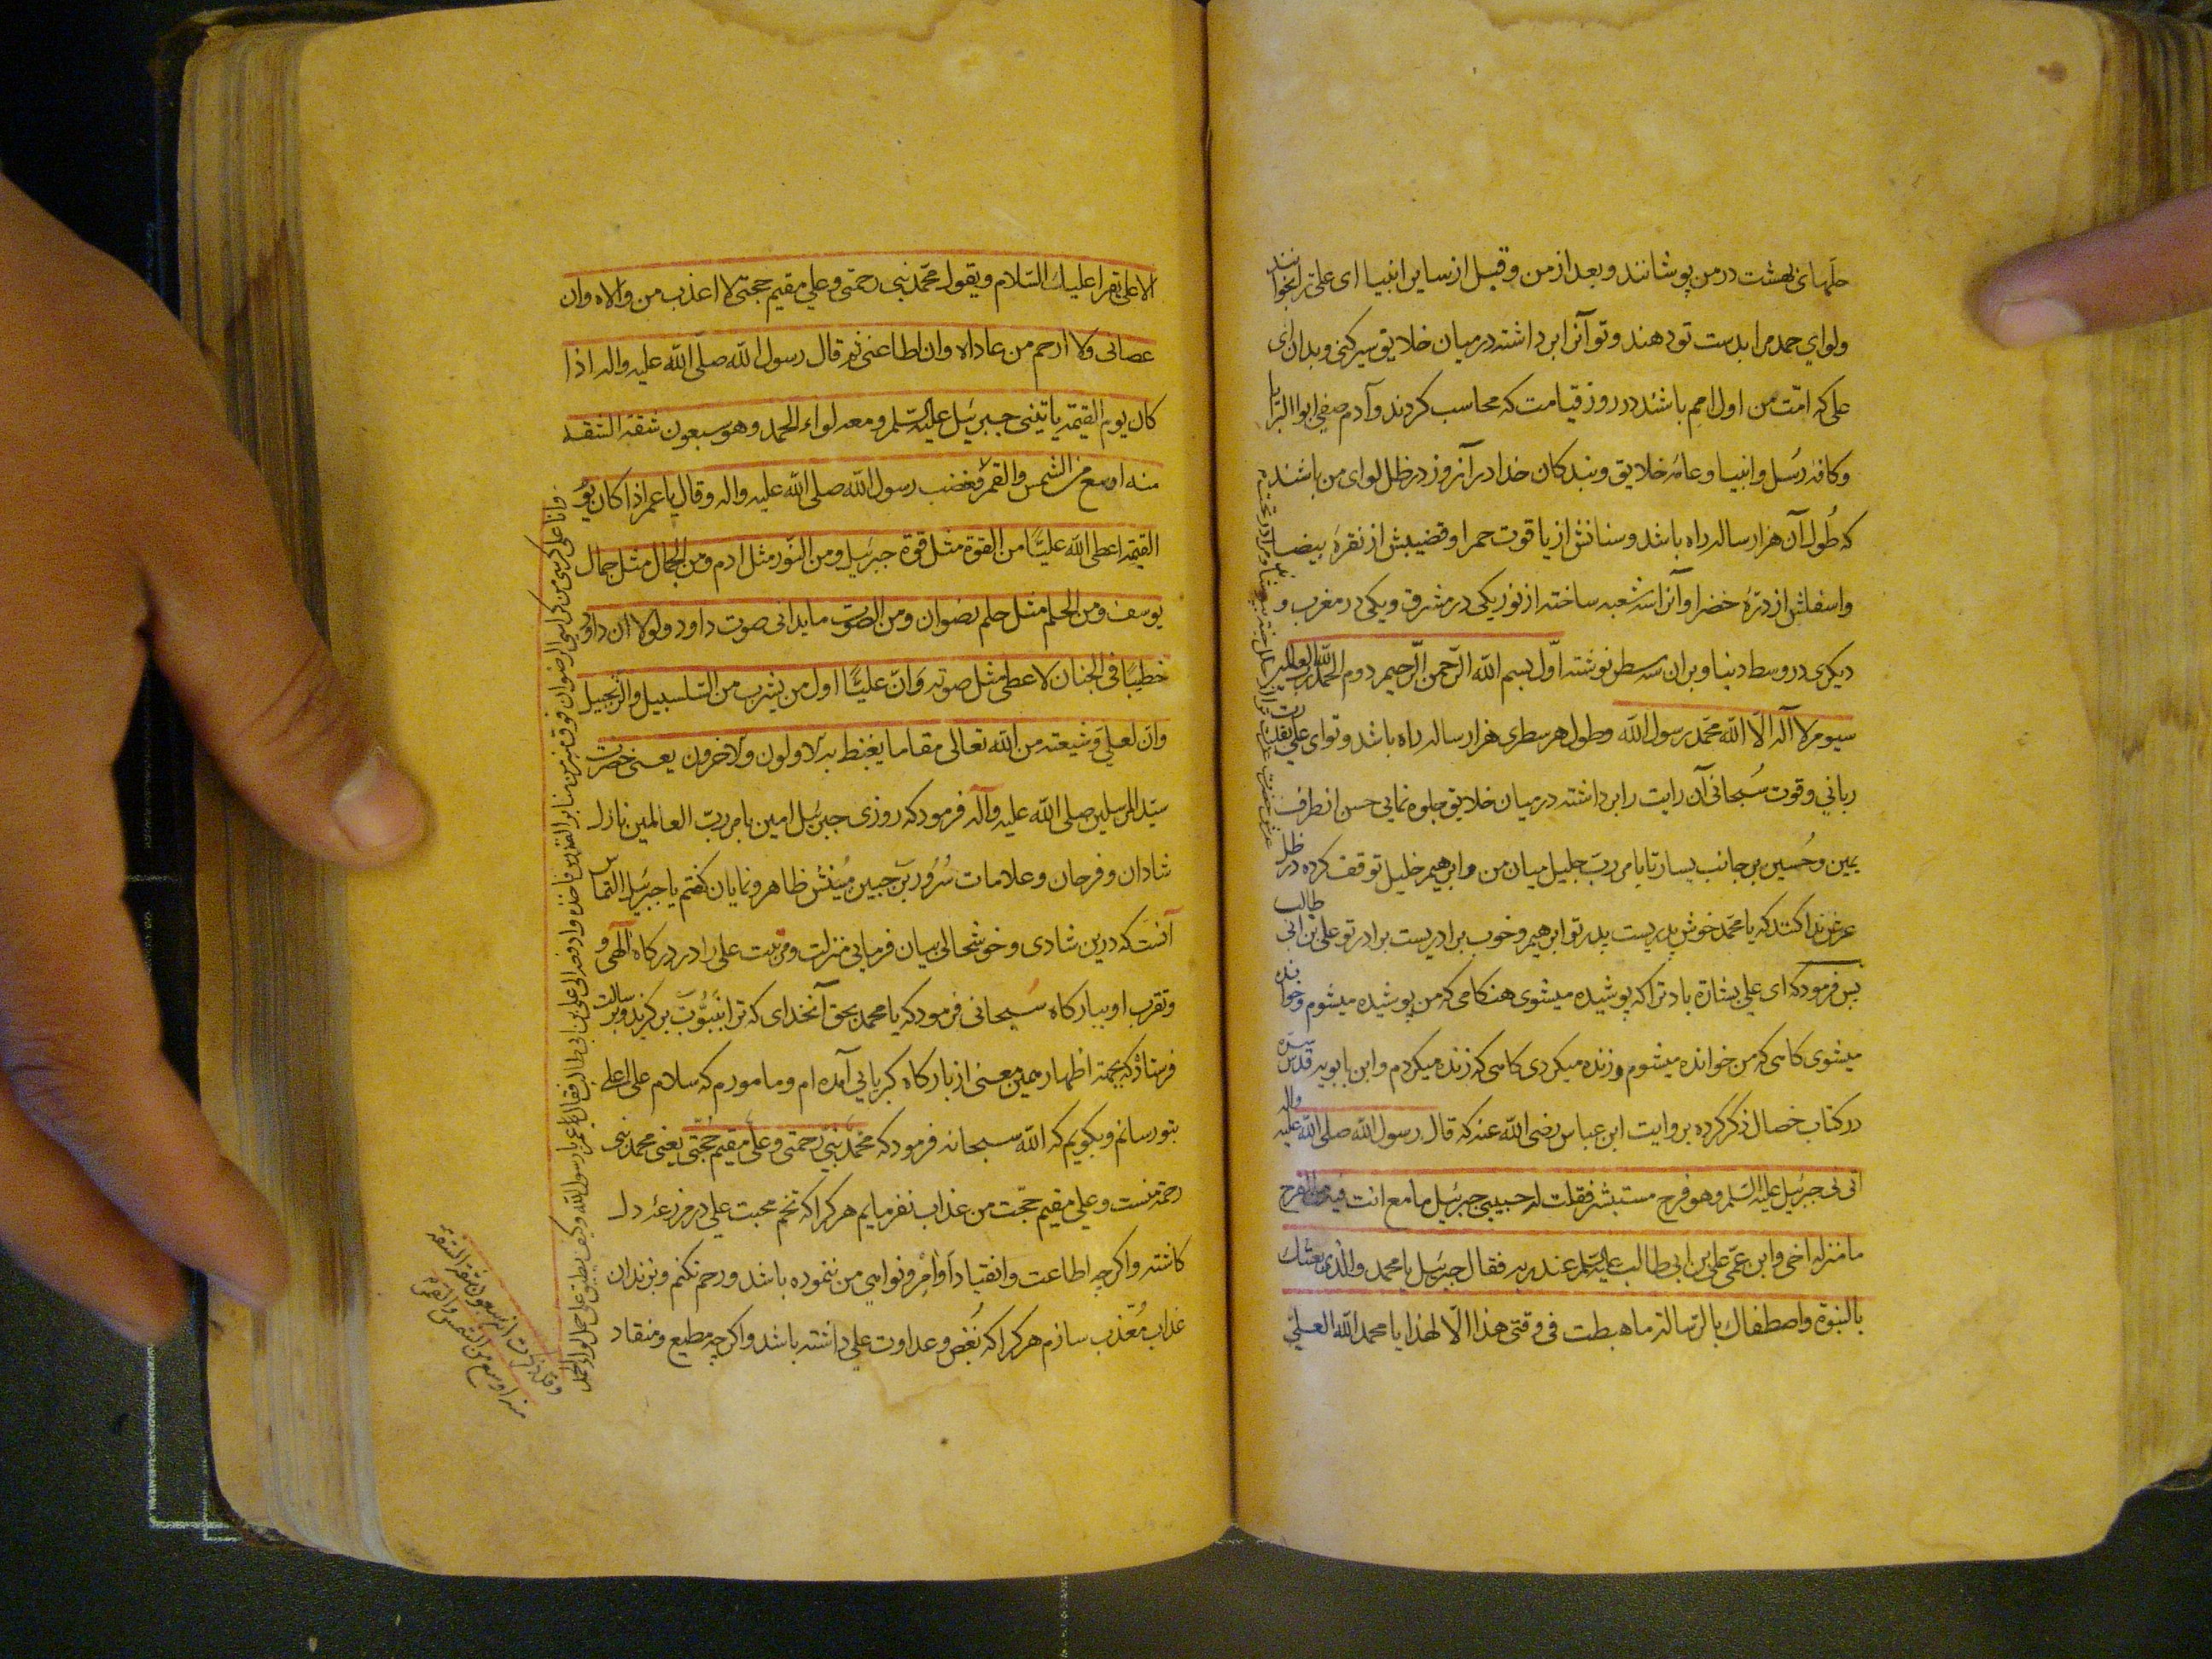 حلهای بهشت در من پوشانند و بعد از من و قبل از سایر انبیا ای علی ترا بخوانند
ولوای حمد مرا بدست تو دهند و تو آنرا برداشته در میان خلایق سیر کنی و بدان ای
علی که امّت من اول امم باشند در روز قیامت که محاسب کردند و آدم صفی ابوا البرایا
و کافهٔ رُسل و انبیا و عامهٔ خلایق و بندکان خدا در آنروز در ظل لوای من باشند
که طُول آن هزار ساله راه باشد و سنانش از یاقوت حمرا و قضیبش از نقرهٔ بیضا
و اسفلش از درّهٔ خضرا و آنرا سه شعبه ساخته از نور یکی در مشرق و یکی در مغرب و
دیکری در وسط دنیا و بران سه سطر نوشته اوّل بسم الله الرّحمن الرّحیم دوم الحمد لله رب العالمین
سیوم لا آله الّا الله محمّد رسول الله و طول هر سطری هزار ساله راه باشد و تو ای علی بقدرت
ربانی و قوت سُبحانی آن رایت را برداشته در میان خلایق جلوه نمایی حسن از طرف
یمین و حُسین بر جانب یسار تا بامر ربّ جلیل میان من و ابرهیم خلیل توقف کرده در ظل
عرش ندا کنند که یا محمّد خوش پدریست پدر تو ابرهیم و خوب برادریست برادر تو علی بن ابی طالب
پس فرمود که ای علی بشارة باد ترا که پوشیده میشوی هنکامی که من پوشیده میشوم و خوانده
میشوی کاهی که من خوانده میشوم و زنده میکردی کاهی که زنده میکردم و ابن بابویه قدّس سره
در کتاب خصال ذکر کرده بروایت ابن عباس رضی الله عنه که قال رسول الله صلی الله علیه واله
اتی نی جبرئیل علیه السّلم و هو فرح مستبشر فقلت له حبیبی جبرئیل ما مع انت فیه من الفرح
ما منزلة اخی و ابن عمّی علی بن ابی طالب علیه السلم عند ربه فقال جبرئیل یا محمد و الّذی بعثک
بالنبوّة و اصطفاک بالرّسالة ما هبطت فی وقتی هذا الّا لهذا یا محمد الله العلیّ
الاعلی یقرا علیک السّلام و یقول محمّد نبی رحمتی و علی مقیم حجتی لا اعذب من والاه و ان
عصانی و لا ارحم من عاداه و ان اطاعنی ثم قال رسول الله صلّی الله علیه واله اذا
کان یوم القیمة یاتینی جبرئیل علیه السّلم و معه لواء الحمد و هو سبعون شقة الشقه
منه اوسع من الشمس و القمر فغضب رسول الله صلی الله علیه واله و قال یا عمر اذا کان یوم
القیمة اعطی الله علیّا من القوة مثل قوة جبرئیل و من النّور مثل ادم و من الجمال مثل جمال
یوسف و من الحلم مثل حلم رضوان و من الصوت ما یدانی صوت داود و لولا ان داود
خطیبًا فی الجنان لاعطی مثل صوته و انّ علیًّا اول من یشرب من السّلسبیل و الزنجبیل
و انّ لعلیّ و شیعته من الله تعالی مقاما یغبط به الاولون و الاخرون یعنی حضرت
سیّد المرسلین صلی الله علیه و آله فرمود که روزی جبرئیل امین بامر ربّ العالمین نازل
شادان و فرحان و علامات سُرُور بر جبین مُبینش ظاهر و نمایان کفتم یا جبرئیل التماس
آنست که درین شادی و خوشحالی بیان فرمایی منزلت و مرتبت علی را در درکاه الهی و
و تقرب او ببارکاه سُبحانی فرمود که یا محمد بحق آنخدای که ترا بنبُوّت برکزیده و برسالت
فرستاده که بجهة اظهار همین معنی از بارکاه کبریایی آمده ام و مامورم که سلام علی اعلی
بتو رسانم و بکویم که الله سبحانه فرمود که محمّد نبیّ رحمتی و علی مقیم حُجّتی یعنی محمد نبی
رحمة منست و علی مقیم حجّت من عذاب نفرمایم هر کرا که تخم محبت علی در مزرعهٔ دل
کاشته و اکرچه اطاعت و انقیاد اوامر و نواهی من ننموده باشد و رحم نکنم و بنرندان
عذاب مُعذّب سازم هر کرا که بُغض و عداوت علی داشته باشد و اکرچه مطیع و منقاد
و انا علی کرسی من کراسی الرضوان فوق منبر من منابر القدس فاخذه و ادفعه الی علی بن ابی طالب فقال عمر یا رسول الله و کیف یطیق علی حمل لواء الحمد
و قد ذکرت انه سبعون شقة الشقه
منه اوسع من الشمس و القمر